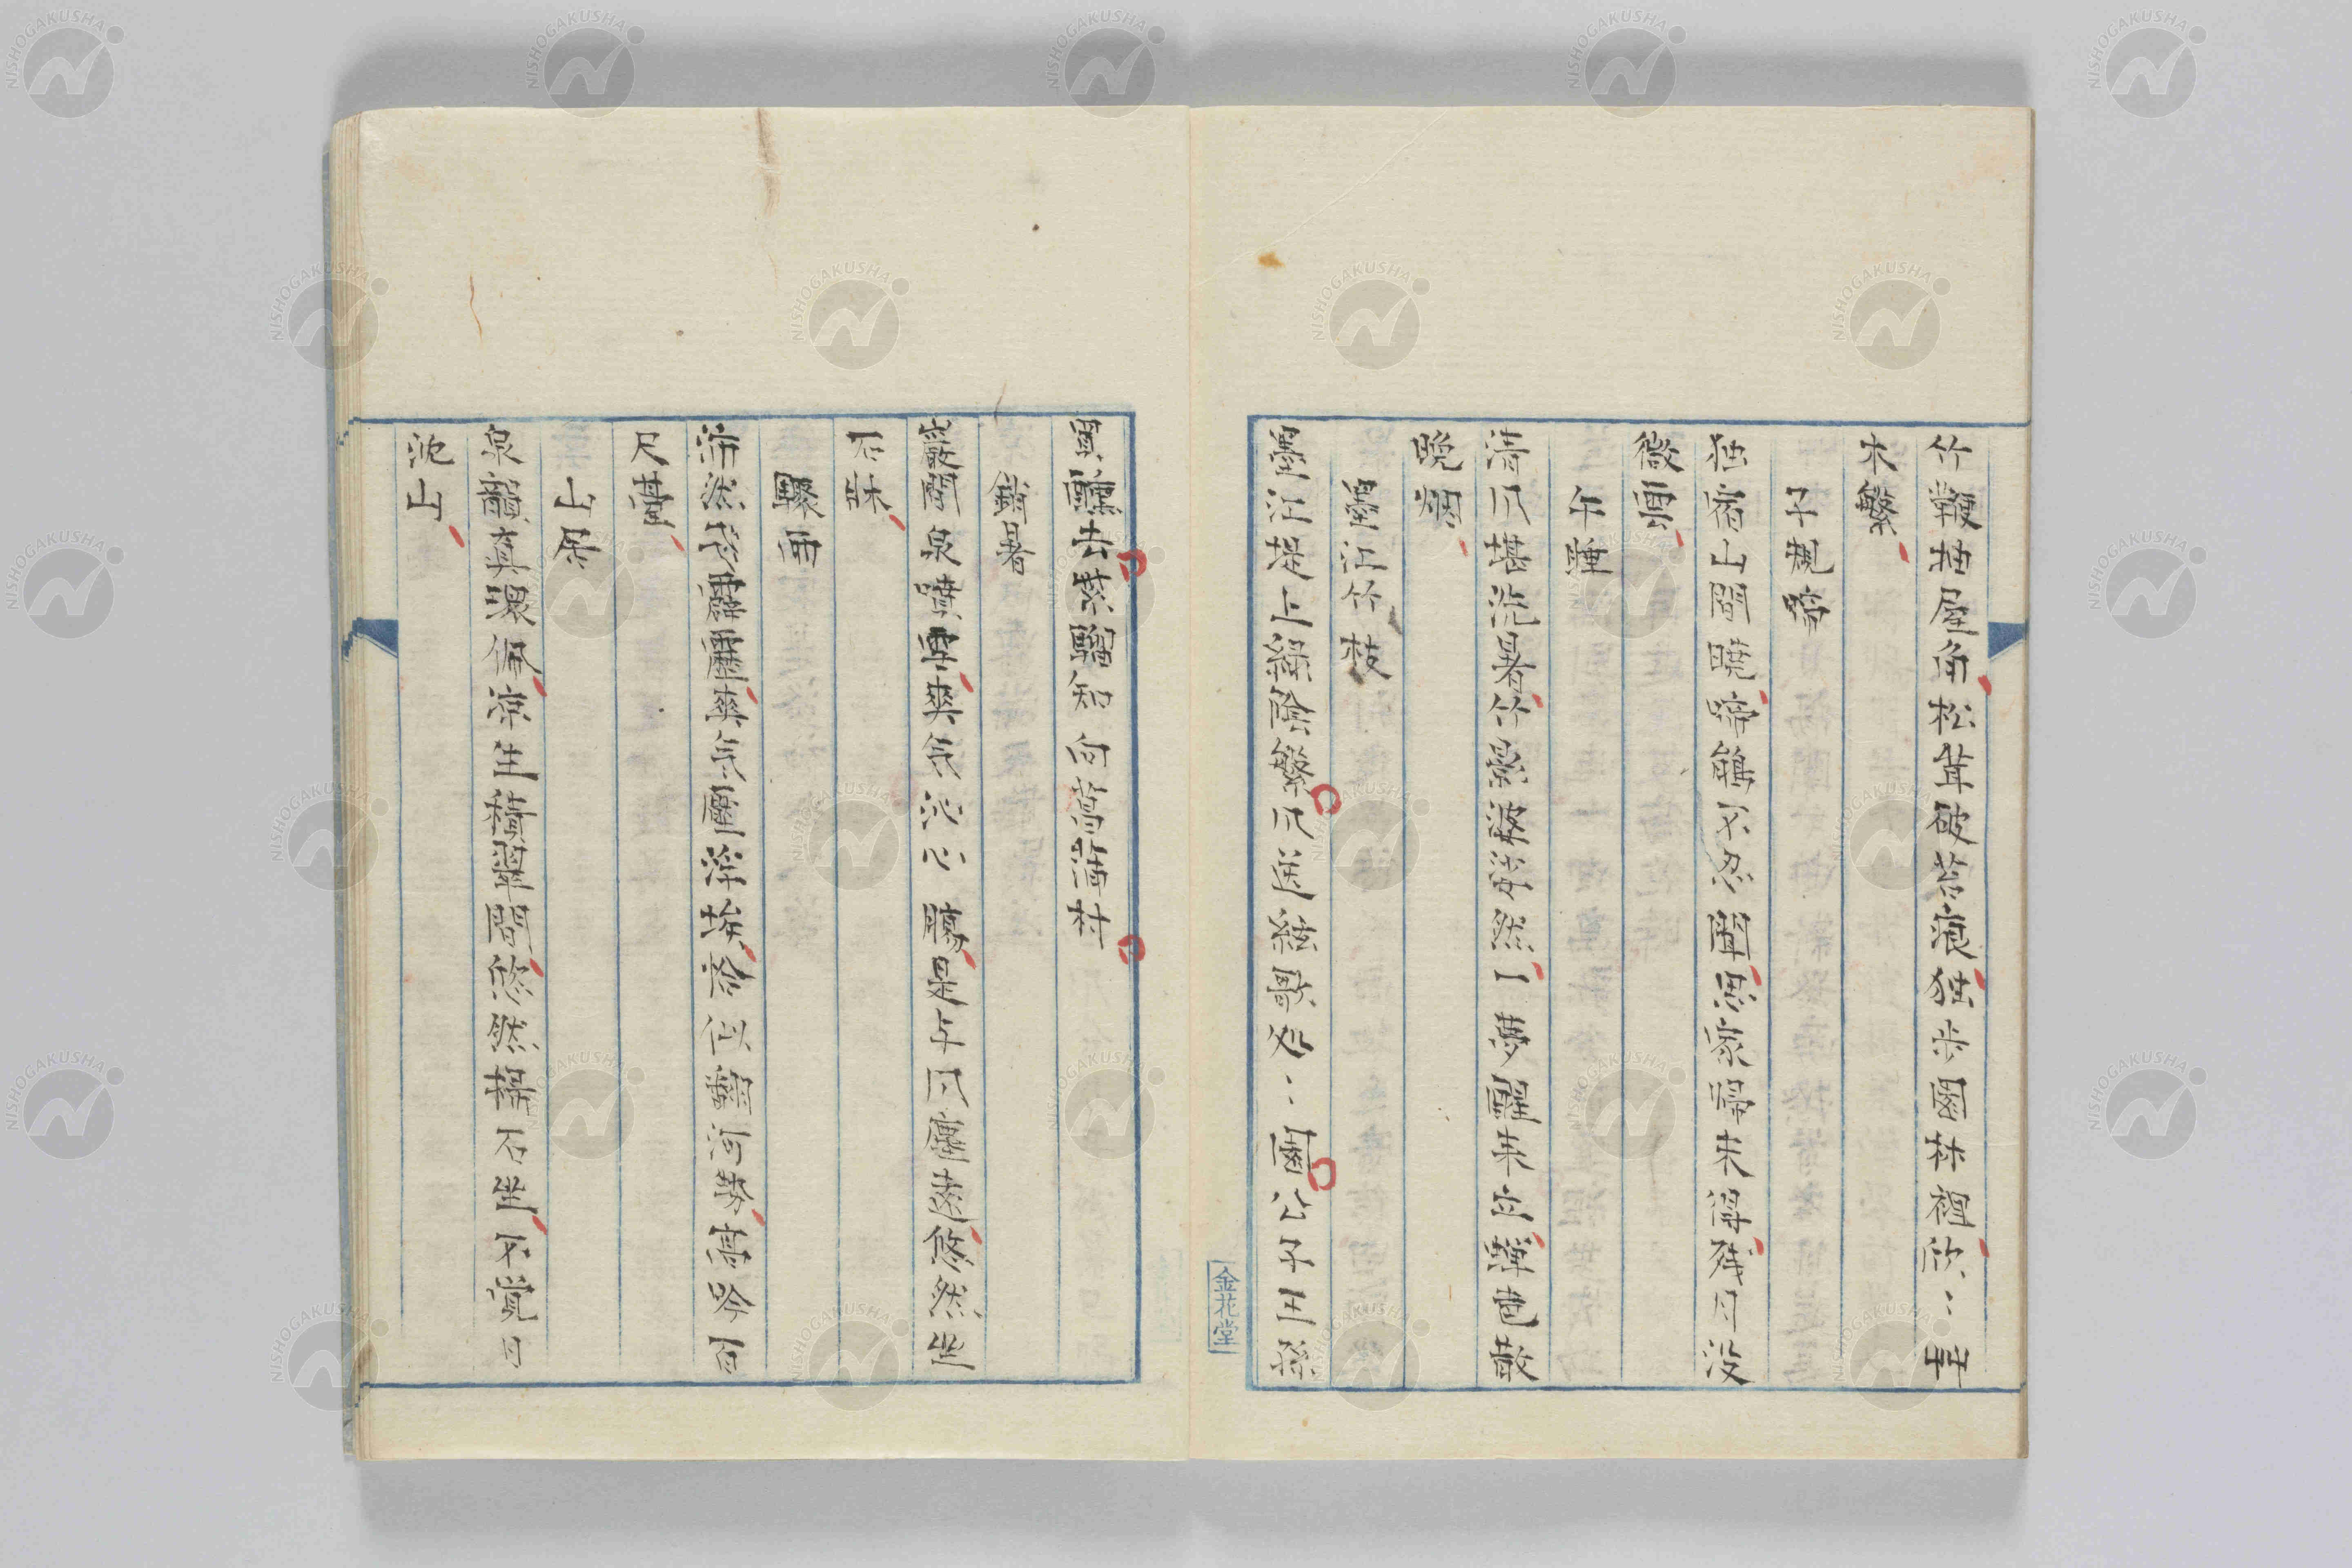 竹鞭抽屋角松茸破苔痕独歩園林裡欣〻卉
木繁
子規啼
独宿山閣暁啼鵑不忍聞思家帰未得残月没
微雲
午睡
清風堪洗暑竹影婆娑然一夢醒来立蝉声散
晩烟
墨江竹枝
墨江堤上緑陰繁風送絃歌処〻園公子王孫
去紫騮知向菖蒲村
銷暑
巌間泉噴雪爽気沁心腸是与風塵遠悠然坐
石牀
驟雨
沛然移霹靂爽気圧浮埃檐似翻河勢高吟百
尺台
山居
泉韻真環佩涼生積翠間悠然掃石坐不覚日
沈山
金花堂
NISHOGAKUSHA